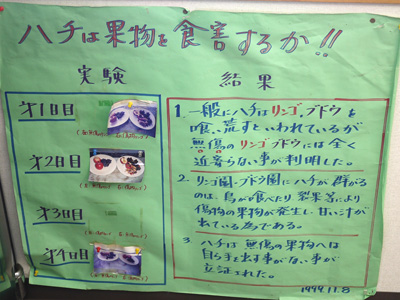 ハチは果物を食害するか!!
実験
結果
才1日目
才2日目
才3日目
才4日目
1. 一般にハチはリンゴ、ブドウを
喰い荒すといわれているが
無傷のリンゴブドウには全く
近寄らない事が判明した。
2. リンゴ園・ブドウ園にハチが群がる
のは、鳥が食べたり裂果等により
傷物の果物が発生し甘い汁が
出ている為である。
3. ハチは無傷の果物へは
自ら手を出す事がない事が
立証された。
1999.11.8